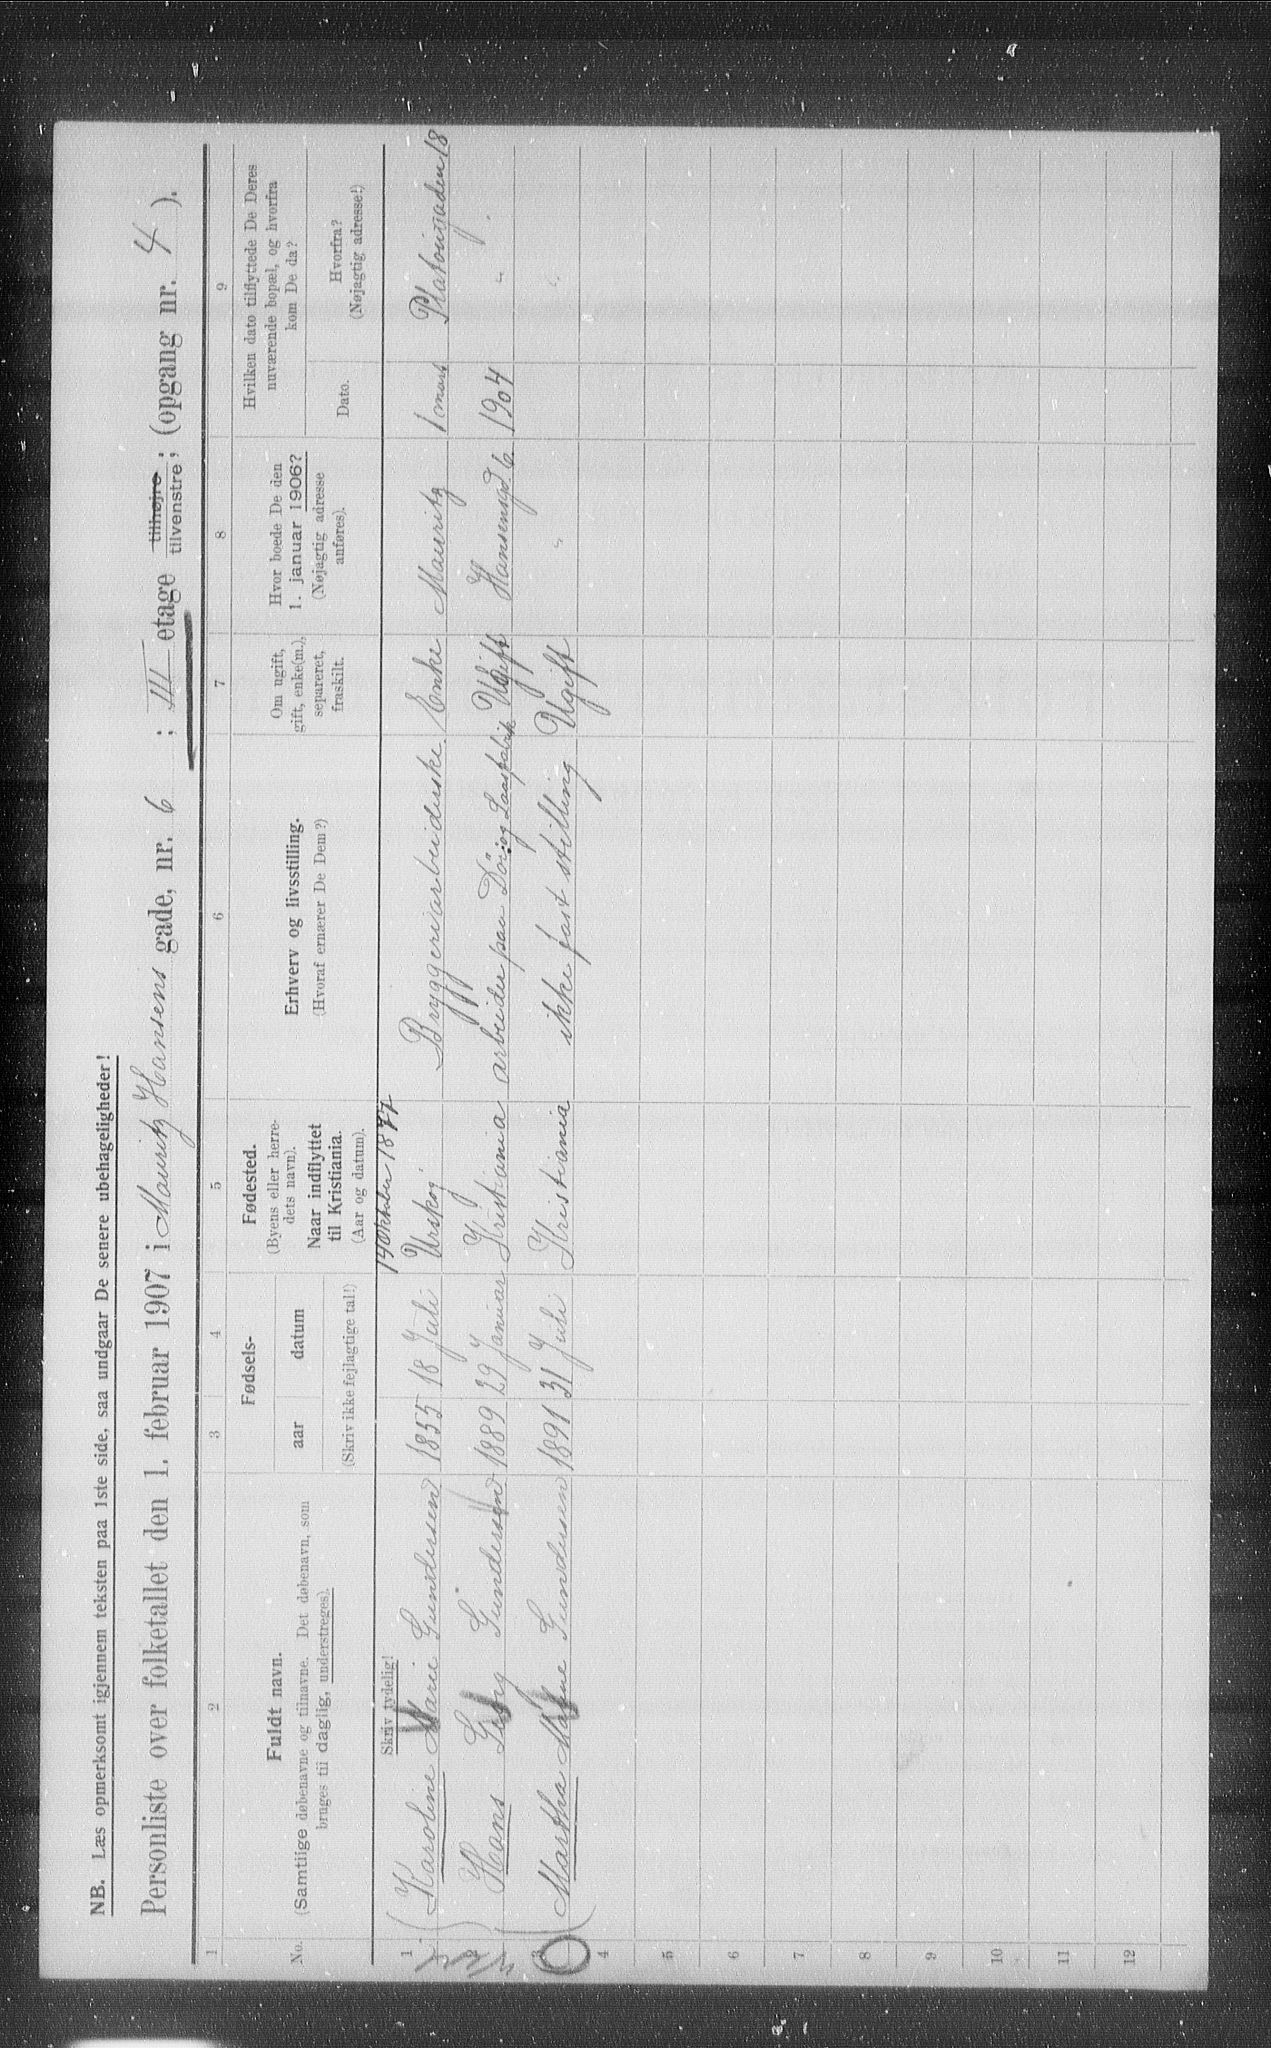 NB. Læs opmerksomt igjennem teksten paa 1ste side, saa undgaar De senere ubehageligheder!
Personliste over folketallet den 1. februar 1907 i Mauritz Hansens gade, nr. 6 ; III etage tilhøjre ; tilvenstre ; (opgang nr. 4 ).
1 2 3 4 5 6 7 8 9
No.
Fuldt navn.
(Samtlige døbenavne og tilnavne. Det døbenavn, som
bruges til daglig, understreges).
Fødsels-
aar datum
(Skriv ikke fejlagtige tal!)
Fødested.
(Byens eller herre-
dets navn).
Naar indflyttet
til Kristiania.
(Aar og datum).
Erhverv og livsstilling.
(Hvoraf ernærer De Dem?)
Om ugift,
gift, enke(m.),
separeret,
fraskilt.
Hvor boede De den
1. januar 1906?
(Nøjagtig adresse
anføres).
Hvilken dato tilflyttede De Deres
nuværende bopæl, og hvorfra
kom De da?
Dato.
Hvorfra?
(Nøjagtig adresse!)
Skriv tydelig!
Oktober 1877
1 Karoline Marie Gundersen 1855 18 Juli Urskoj Bryggeriarbeiderske Enke Mauritz 1 mars Platousgaden 18
2 Haans Georg Gundersen 1889 29 Januar Kristiania arbeider paa Dør og Laasfabrik Ugift Hansensgd. 6 1904 "
3 Martha Marie Gundersen 1891 31 Juli Kristiania ikke fast stilling Ugift " "
4
5
6
7
8
9
10
11
12